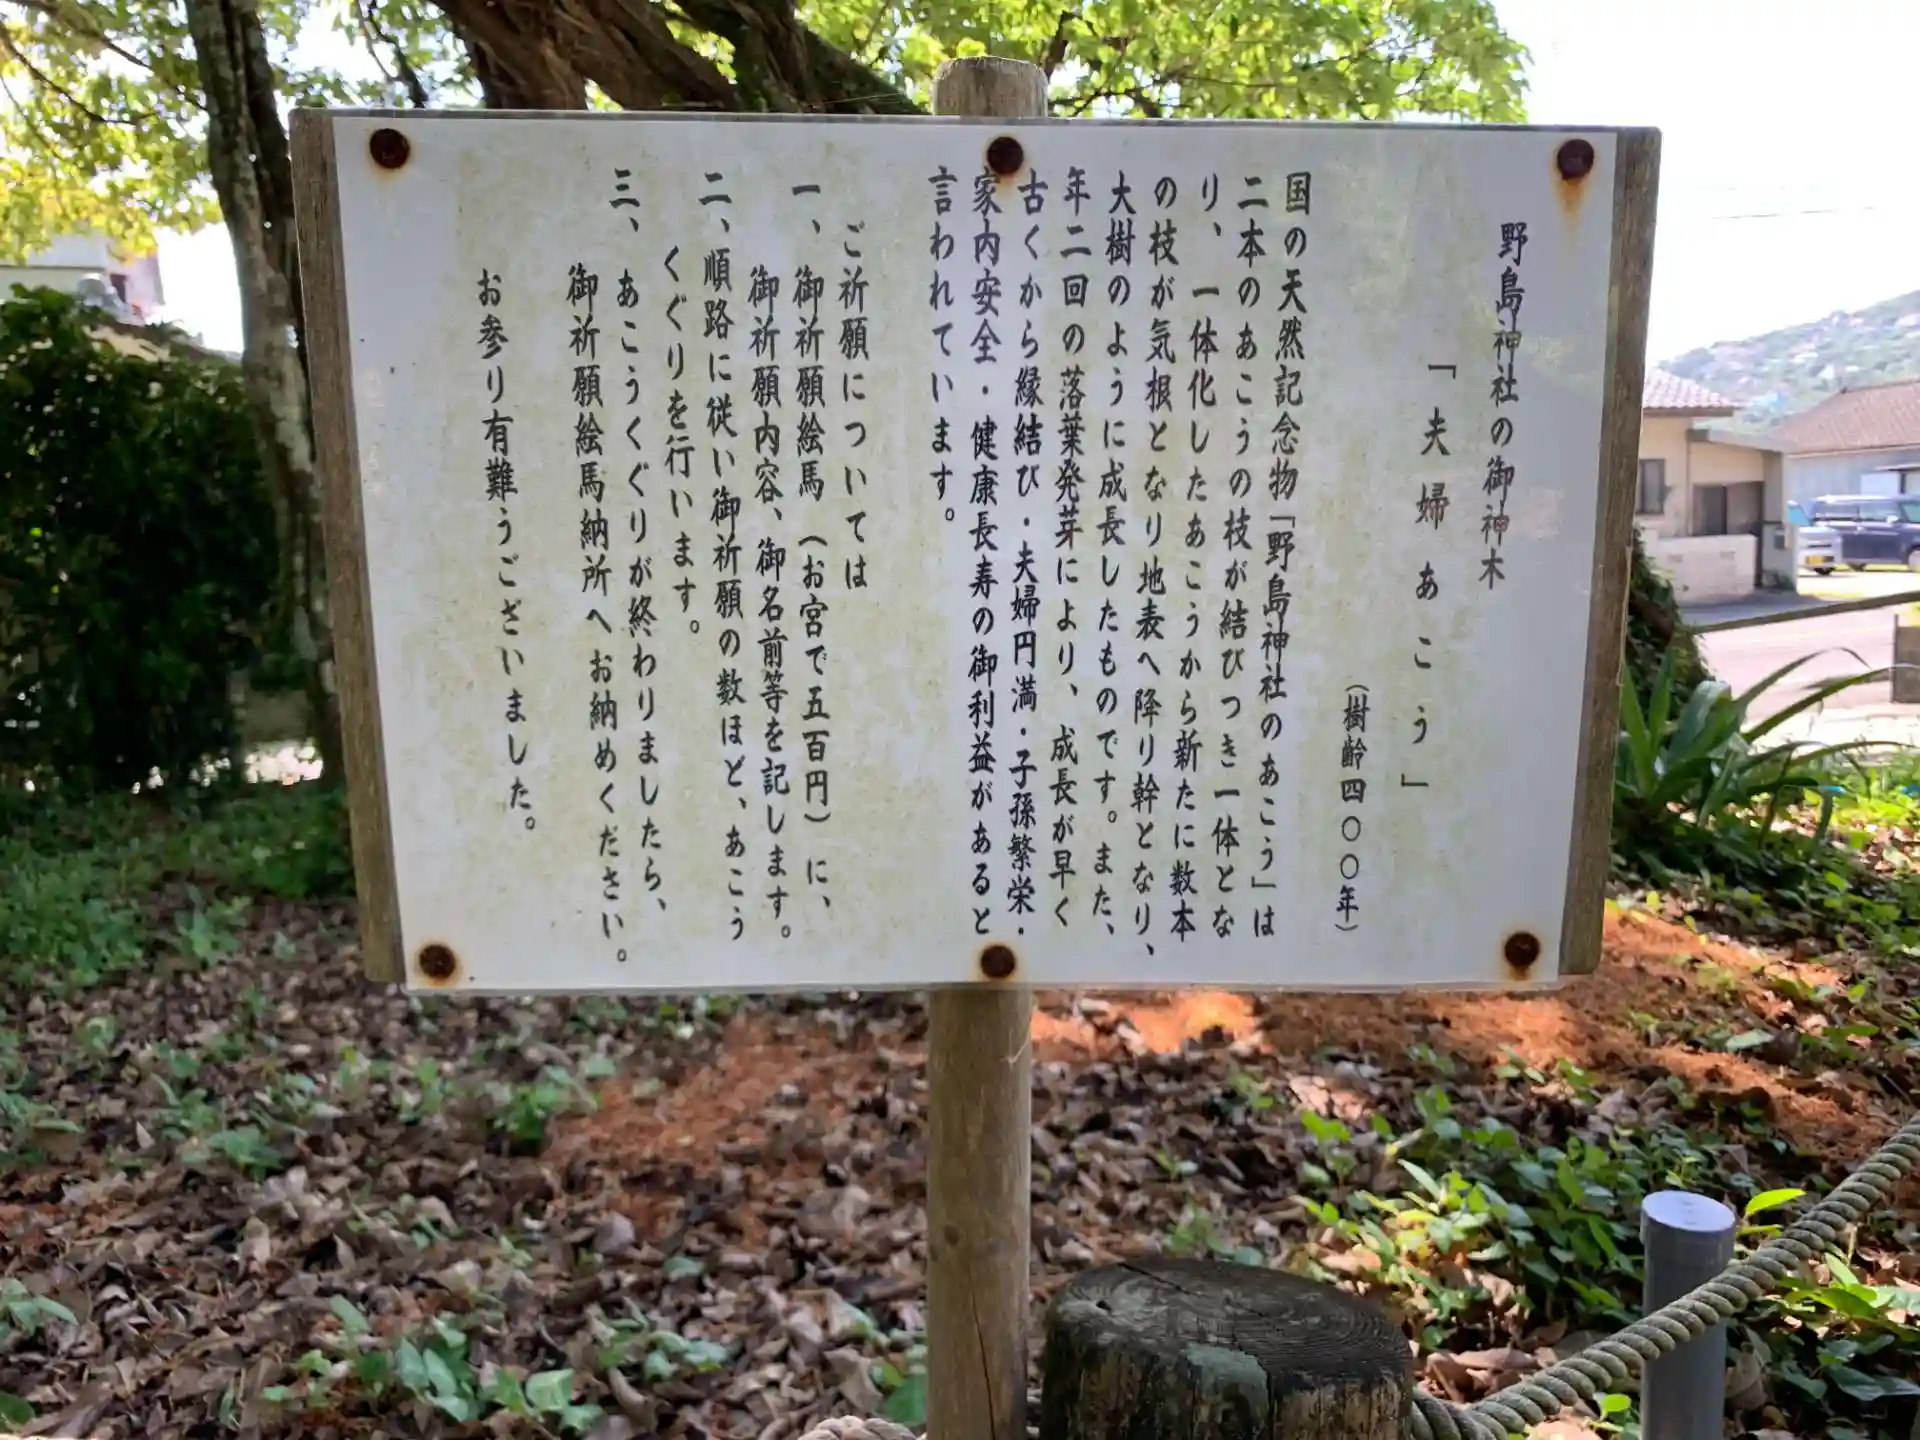 野島神社の御神木
「夫婦あこう」
（樹齢四〇〇年）
国の天然記念物「野島神社のあこう」は
二本のあこうの枝が結びつき一体とな
り、一体化したあこうから新たに数本
の枝が気根となり地表へ降り幹となり、
大樹のように成長したものです。また、
年二回の落葉発芽により、成長が早く
古くから縁結び・夫婦円満・子孫繁栄・
家内安全・健康長寿の御利益があると
言われています。
ご祈願については
一、御祈願絵馬（お宮で五百円）に、
御祈願内容、御名前等を記します。
二、順路に従い御祈願の数ほど、あこう
くぐりを行います。
三、あこうくぐりが終わりましたら、
御祈願絵馬納所へお納めください。
お参り有難うございました。